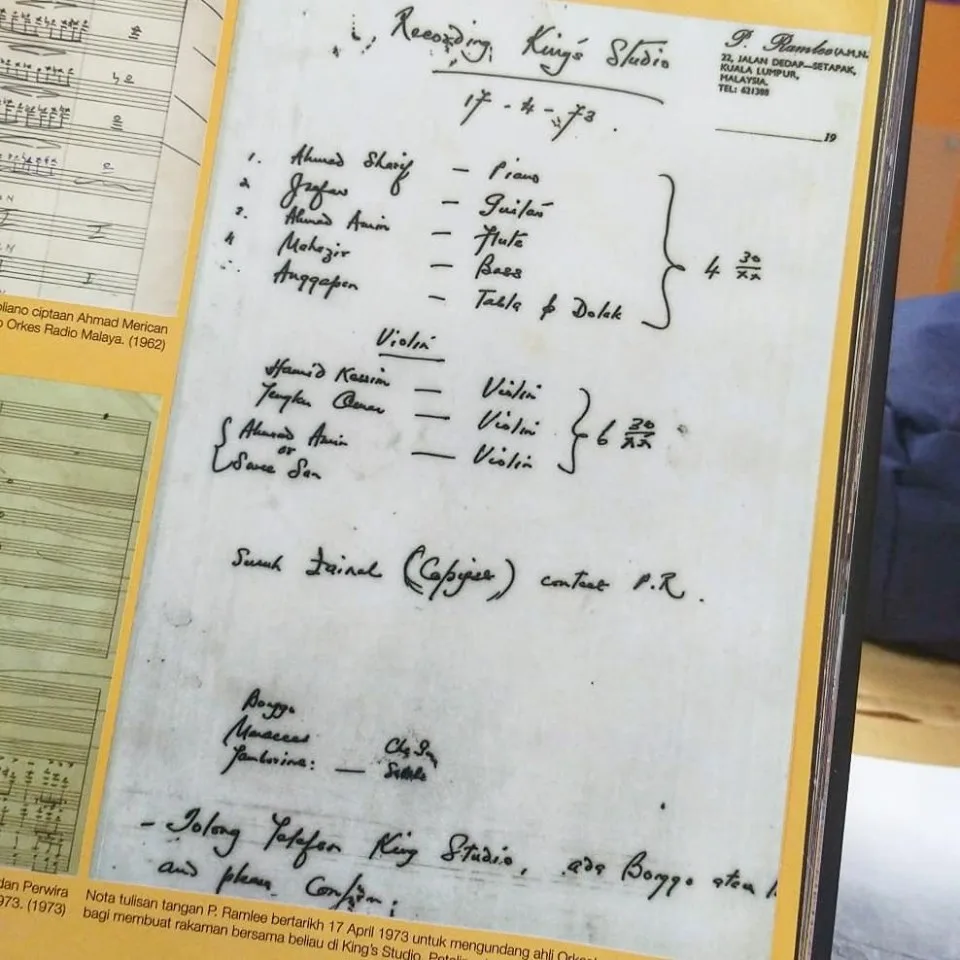 Recording King's Studio
17 - 4 - 73.
P. Ramlee A.M.N.
22, JALAN DEDAP—SETAPAK,
KUALA LUMPUR,
MALAYSIA.
TEL: 621388
19
1. Ahmad Sharif — Piano
2. — Guitar
3. Ahmad Amin — Flute
4 Mahazir — Bass
Anggapan — Tabla & Dolak
4 30/xx
Violin
Hamid Kassim — Violin
Tengku Omar — Violin
{ Ahmad Amin
or — Violin
San
6 30/xx
Suruh Zainal (Copyist) contact P.R.
Bonggo
Maraccas
Tamborine: —
- Tolong Talefon King Studio, ada Bonggo atau
and please Confirm;
oliano ciptaan Ahmad Merican
o Orkes Radio Malaya. (1962)
dan Perwira
973. (1973)
Nota tulisan tangan P. Ramlee bertarikh 17 April 1973 untuk mengundang ahli
bagi membuat rakaman bersama beliau di King's Studio,